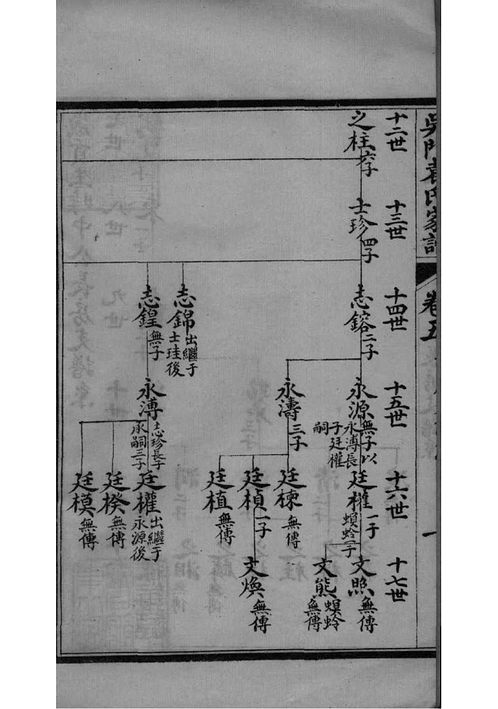 吳門袁氏家譜
卷五
一
十二世
十三世
十四世
十五世
十六世
十七世
之柱 六子
士珍 四子
志鎔 二子
永源 無子以永溥長子廷權嗣
廷權 一子螟蛉一子
文照 無傳
文熊 螟蛉無傳
永濤 三子
廷楝 無傳
廷楨 一子
文煥 無傳
廷植 無傳
志錦 出繼于士珪後
志鍠 無子
永溥 志珍長子承嗣三子
廷權 出繼于永源後
廷楑 無傳
廷模 無傳